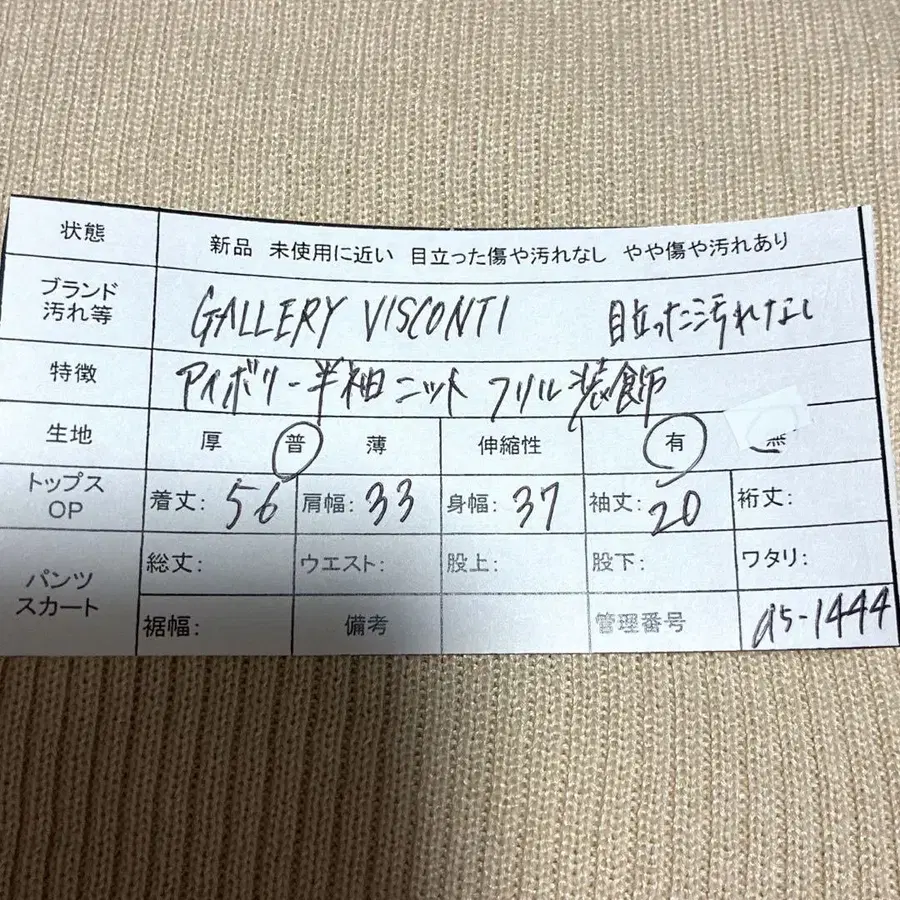 状態 新品 未使用に近い 目立った傷や汚れなし やや傷や汚れあり
ブランド
汚れ等 GALLERY VISCONTI 目立った汚れなし
特徴 アイボリー半袖ニット フリル装飾
生地 厚 普 薄 伸縮性 有
トップス
OP 着丈: 56 肩幅: 33 身幅: 37 袖丈: 20 裄丈:
パンツ
スカート 総丈: ウエスト: 股上: 股下: ワタリ:
裾幅: 備考 管理番号 a5-1444